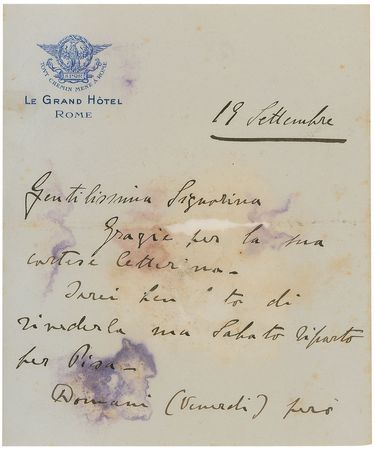 TOUT CHEMIN MENE A ROME
LE GRAND HÔTEL
ROME
19 Settembre
Gentilissima Signorina
Grazie per la sua
cortese letterina —
Sarei di
rivederla ma Sabato riparto
per Pisa —
Domani (Venerdì) però